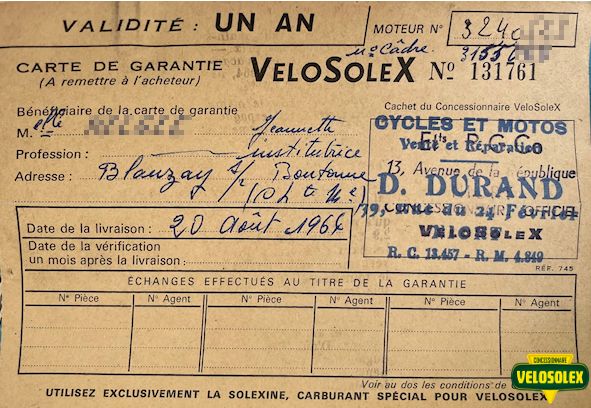 VALIDITÉ : UN AN
MOTEUR N° 3240
n° Câdre. 3155
CARTE DE GARANTIE
(A remettre à l'acheteur)
VELOSOLEX N° 131761
Bénéficiaire de la carte de garantie
M. elle Jeannette
Profession : institutrice
Adresse : Blanzay s/ Boutonne
(Ch te Me)
Cachet du Concessionnaire VeloSoleX
CYCLES ET MOTOS
Vente et Réparation
13, Avenue de la République
D. DURAND
CONCESSIONNAIRE OFFICIEL
39, rue du 24 Février
VELOSOLEX
R. C. 13.457 - R. M. 4.849
RÉF. 745
Date de la livraison : 20 Août 1964
Date de la vérification
un mois après la livraison :
ÉCHANGES EFFECTUÉS AU TITRE DE LA GARANTIE
N° Pièce N° Agent N° Pièce N° Agent N° Pièce N° Agent
Voir au dos les conditions de
UTILISEZ EXCLUSIVEMENT LA SOLEXINE, CARBURANT SPÉCIAL POUR VELOSOLEX
CONCESSIONNAIRE
VELOSOLEX